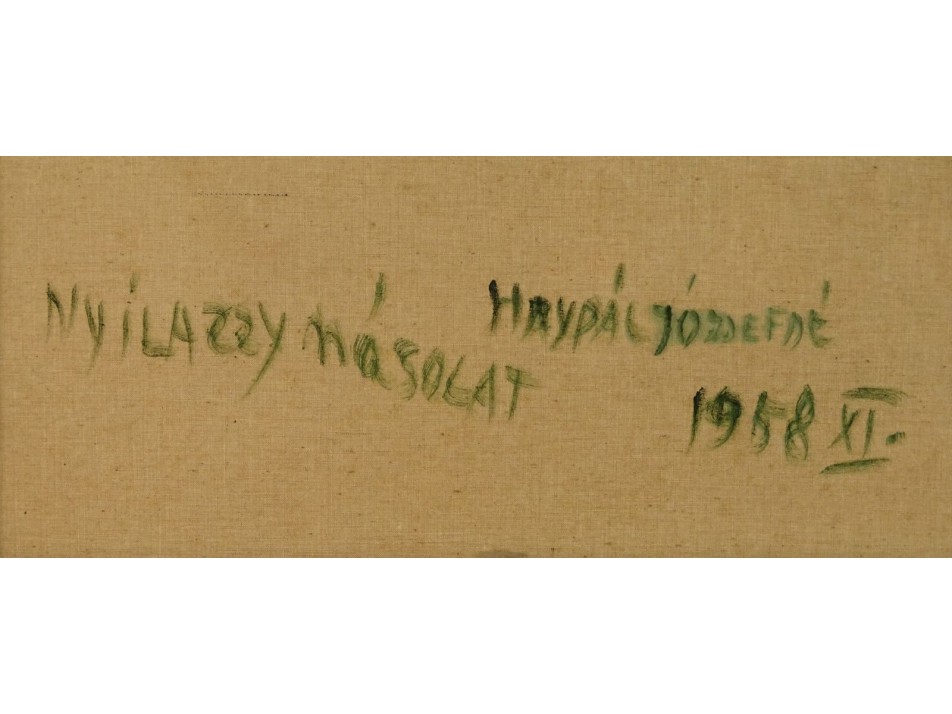 NYÍLASZY MÁSOLAT
HAYPÁL JÓZSEFNÉ
1958 XI.